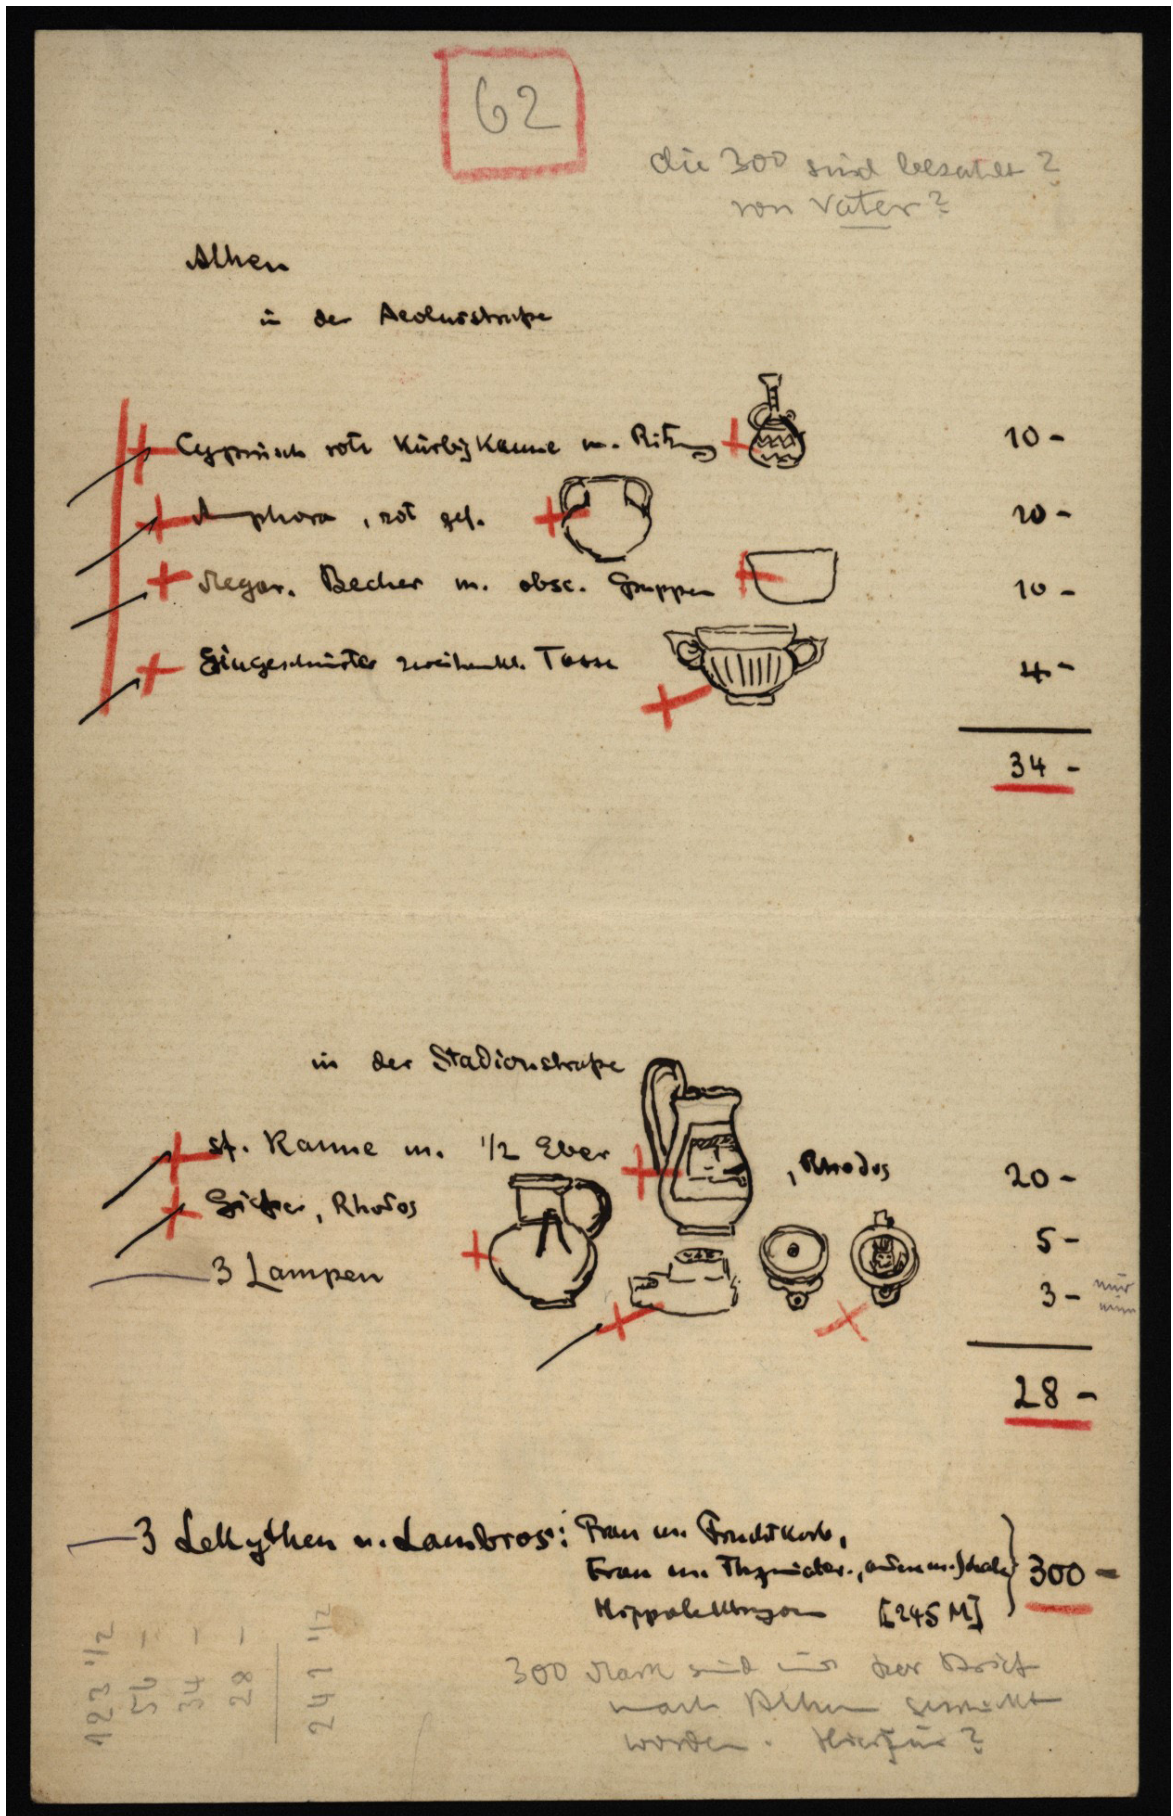 62
die 300 sind bezahlt?
von Vater?
Athen
in der Aeolusstraße
Cyprisch rote Kürbiskanne m. Ritzung 10-
Amphora, rot gef. 10-
Megar. Becher m. obsc. Gruppen 10-
zweihenkl. Tasse 4-
34-
in der Stadionstraße
sf. Kanne m. 1/2 Eber, Rhodos 20-
Rhodos 5-
3 Lampen 3- nur
28-
3 Lekythen v. Lambros: Frau m. Fruchtkorb,
Frau m. 300-
[245 M]
300 Mark sind mir per
nach Athen geschickt
worden. Hierfür?
123 1/2
56 -
34 -
28 -
241 1/2